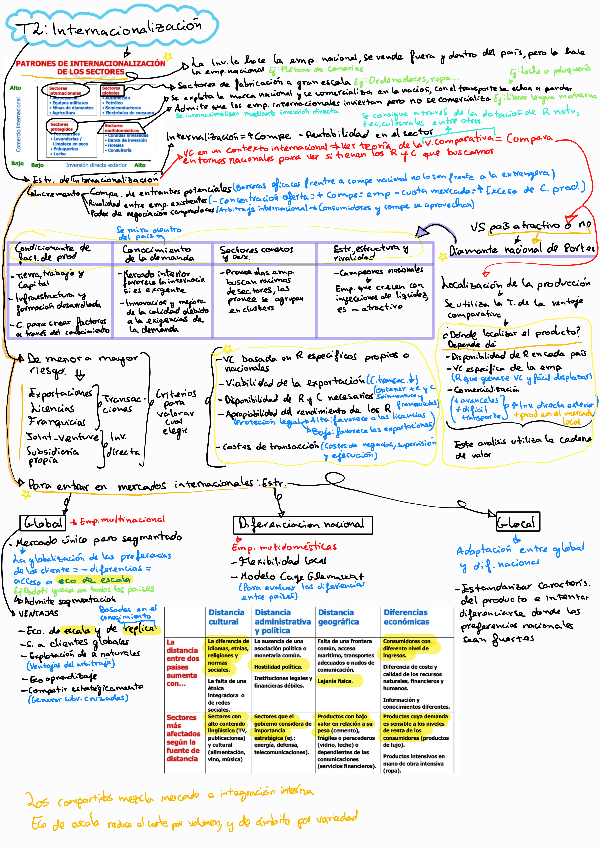 T2: Internacionalización
PATRONES DE INTERNACIONALIZACIÓN
DE LOS SECTORES
Alto
Comercio Internacional
Bajo
Sectores internacionales
Equipos militares
Minas de diamantes
Agricultura
Sectores globales
Automoción
Petróleo
Semiconductores
Electrónica de consumo
Sectores protegidos
Lavanderías / Limpieza en seco
Peluquerías
Leche
Sectores multidomésticos
Banca de inversión
Hoteles
Consultoría
Bajo Inversión directa exterior Alto
La Inv. la hace la emp. nacional, se vende fuera y dentro del país, pero lo hace
la emp. nacional Eg: Plátano de Canarias
Sectores de fabricación a gran escala Eg: Ordenadores, ropa...
Eg: Leche o peluquería
Se explota la marca nacional y se comercializa en la nación, con el transporte se echa a perder
Admite que las emp. internacionales inviertan pero no se comercializa
Se internacionalizan mediante inversión directa
Se consigue a través de la dotación de R natu,
rec. culturales entre otros
Internalización = + Compe - Rentabilidad en el sector
VC en un contexto internacional → Ver teoría de la v. comparativa = Compara
entornos nacionales para ver si tienen los R y C que buscamos
Estr. de Internacionalización
Incremento
Compe. de entrantes potenciales (Barreras eficaces frente a compe nacional no lo son frente a la extranjera)
Rivalidad entre emp. existentes (- concentración oferta = + Compe = emp - cuota mercado = + exceso de C. prod)
Poder de negociación compradores (Arbitraje internacional → Consumidores y compe se aprovechan)
Se mira dentro
del país
VS país atractivo o no
Diamante nacional de Porter
Condicionante de fact. de prod
- Tierra, trabajo y capital
- Infraestructura y formación desarrollada
- C. para crear factores a través del conocimiento
Conocimiento de la demanda
- Mercado interior favorece la internacio si es exigente
- Innovación y mejora de la calidad debido a la exigencias de la demanda
Sectores conexos y aux.
- Proveedores emp. buscan racimos de sectores, los provee se agrupan en clusters
Estr, estructura y rivalidad
- Campeones nacionales
Emp. que crecen con inyecciones de liquidez, es - atractivo
Localización de la producción
Se utiliza la T. de la ventaja
comparativa
¿Dónde localizar el producto?
Depende de:
- Disponibilidad de R en cada país
- VC específica de la emp.
(R que genere VC y fácil desplazar)
- Comercialización
+ aranceles
+ difícil transporte
+ Inv. directa exterior
+ prod en el mercado local
Este análisis utiliza la cadena
de valor
De menor a mayor
riesgo.
Exportaciones
Licencias
Franquicias
Joint-venture
Subsidiaria
propia
Transacciones
Inv. directa
Criterios
para
valorar
cual
elegir
- VC basada en R específicos propios o
nacionales
- Viabilidad de la exportación (C. transac. ↓)
- Disponibilidad de R y C necesarios
- Apropiabilidad del rendimiento de los R (franquicias)
Protección legal → Alta: favorece a las licencias
Baja: favorece las exportaciones
- Costes de transacción (Costes de negociados, supervisión
y ejecución)
Para entrar en mercados internacionales: Estr.
Global
→ Emp. multinacional
- Mercado único pero segmentado
La globalización de las preferencias
de los cliente = - diferencias =
acceso a eco de escala
en todos los países
Admite segmentación
VENTAJAS
Basadas en el
conocimiento
- Eco. de escala y de réplica
- S. a clientes globales
- Explotación de R naturales
(Ventajas del arbitraje)
- Eco aprendizaje
- Competir estratégicamente
(Generar subv. cruzadas)
Diferenciación nacional
Emp. mutidomésticas
- Flexibilidad local
- Modelo Cage Ghemawat
(Para evaluar las diferencias
entre países)
Glocal
Adaptación entre global
y dif. nacional
- Estandarizar Caracterís.
del producto e intentar
diferenciarse donde las
preferencias nacionales
sean fuertes
Distancia cultural
Distancia administrativa y política
Distancia geográfica
Diferencias económicas
La distancia entre dos países aumenta con...
La diferencia de idiomas, etnias, religiones y normas sociales.
La falta de una étnica integradora o de redes sociales.
La ausencia de una asociación política o monetaria común.
Hostilidad política.
Instituciones legales y financieras débiles.
Falta de una frontera común, acceso marítimo, transportes adecuados o nudos de comunicación.
Lejanía física.
Consumidores con diferente nivel de ingresos.
Diferencia de coste y calidad de los recursos naturales, financieros y humanos.
Información y conocimientos diferentes.
Sectores más afectados según la fuente de distancia
Sectores con alto contenido lingüístico (TV, publicaciones) y cultural (alimentación, vino, música)
Sectores que el gobierno considera de importancia estratégica (ej.: energía, defensa, telecomunicaciones).
Productos con bajo valor en relación a su peso (cemento), frágiles o perecederos (vidrio, leche) o dependientes de las comunicaciones (servicios financieros).
Productos cuya demanda es sensible a los niveles de renta de los consumidores (productos de lujo).
Productos intensivos en mano de obra intensiva (ropa).
Los compartidos mezcla mercado e integración interna
Eco de escala reduce el coste por volumen, y de ámbito por variedad